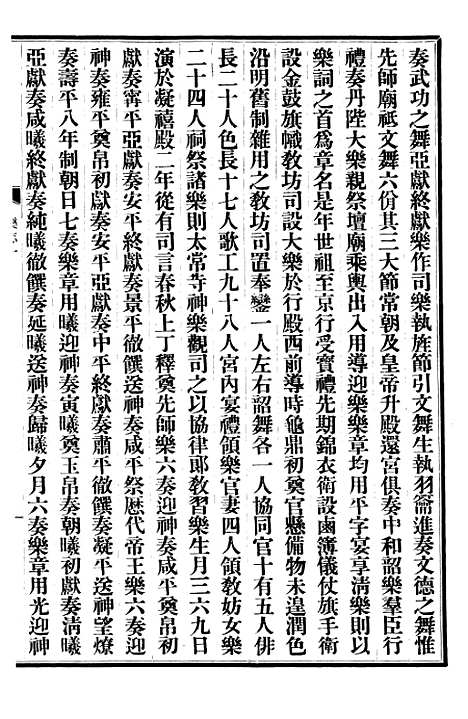 奏武功之舞亞獻終獻樂作司樂執旌節引文舞生執羽籥進奏文德之舞惟
先師廟祗文舞六佾其三大節常朝及皇帝升殿還宮俱奏中和韶樂羣臣行
禮奏丹陛大樂親祭壇廟乘輿出入用導迎樂樂章均用平字宴享清樂則以
樂詞之首爲章名是年世祖至京行受寶禮先期錦衣衛設鹵簿儀仗旗手衛
設金鼓旗幟教坊司設大樂於行殿西前導時龜鼎初奠官懸備物未遑潤色
沿明舊制雜用之教坊司置奉鑾一人左右韶舞各一人協同官十有五人俳
長二十人色長十七人歌工九十八人宮內宴禮領樂官妻四人領教妨女樂
二十四人祠祭諸樂則太常寺神樂觀司之以協律郎教習樂生月三六九日
演於凝禧殿二年從有司言春秋上丁釋奠先師樂六奏迎神奏咸平奠帛初
獻奏寗平亞獻奏安平終獻奏景平徹饌送神奏咸平祭厯代帝王樂六奏迎
神奏雍平奠帛初獻奏安平亞獻奏中平終獻奏肅平徹饌奏凝平送神望燎
奏壽平八年制朝日七奏樂章用曦迎神奏寅曦奠玉帛奏朝曦初獻奏清曦
亞獻奏咸曦終獻奏純曦徹饌奏延曦送神奏歸曦夕月六奏樂章用光迎神